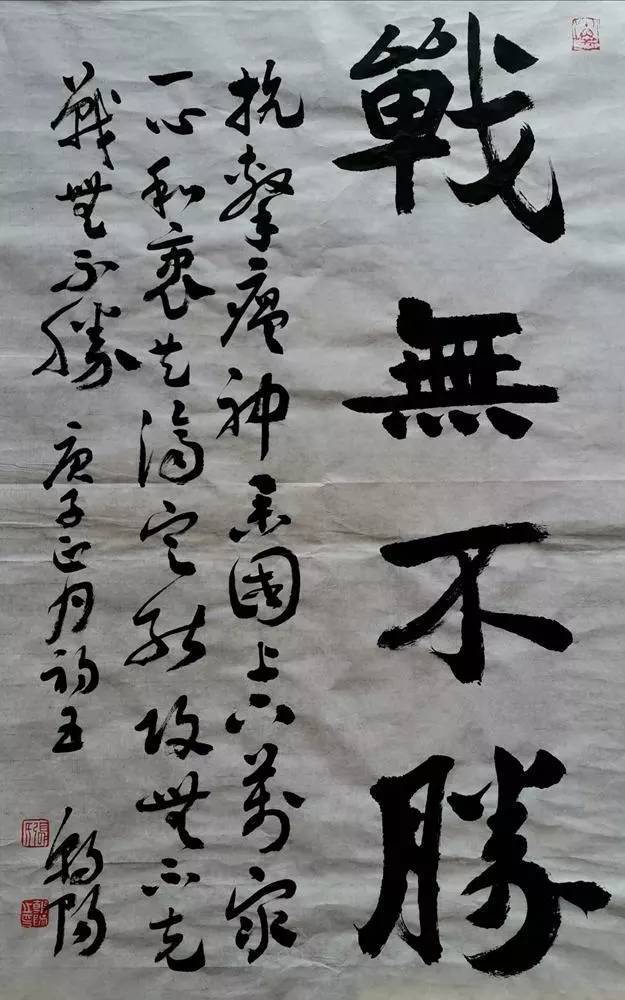 戰無不勝
抗擊瘟神舉國上下萬衆
一心和衷共濟定能攻無不克
戰無不勝 庚子正月初五